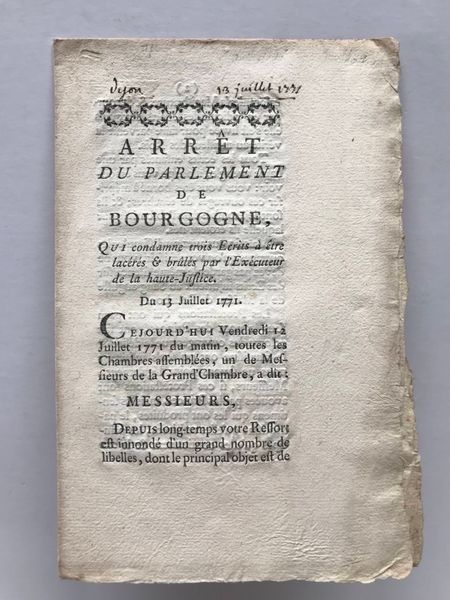 Dijon 13 juillet 1771
ARRÊT
DU PARLEMENT
DE
BOURGOGNE,
QUI condamne trois Ecrits à être
lacérés & brûlés par l'Exécuteur
de la haute-Justice.
Du 13 Juillet 1771.
CEJOURD'HUI Vendredi 12
Juillet 1771 du matin, toutes les
Chambres assemblées, un de Mes-
sieurs de la Grand'Chambre, a dit:
MESSIEURS,
DEPUIS long-temps votre Ressort
est innondé d'un grand nombre de
libelles, dont le principal objet est de